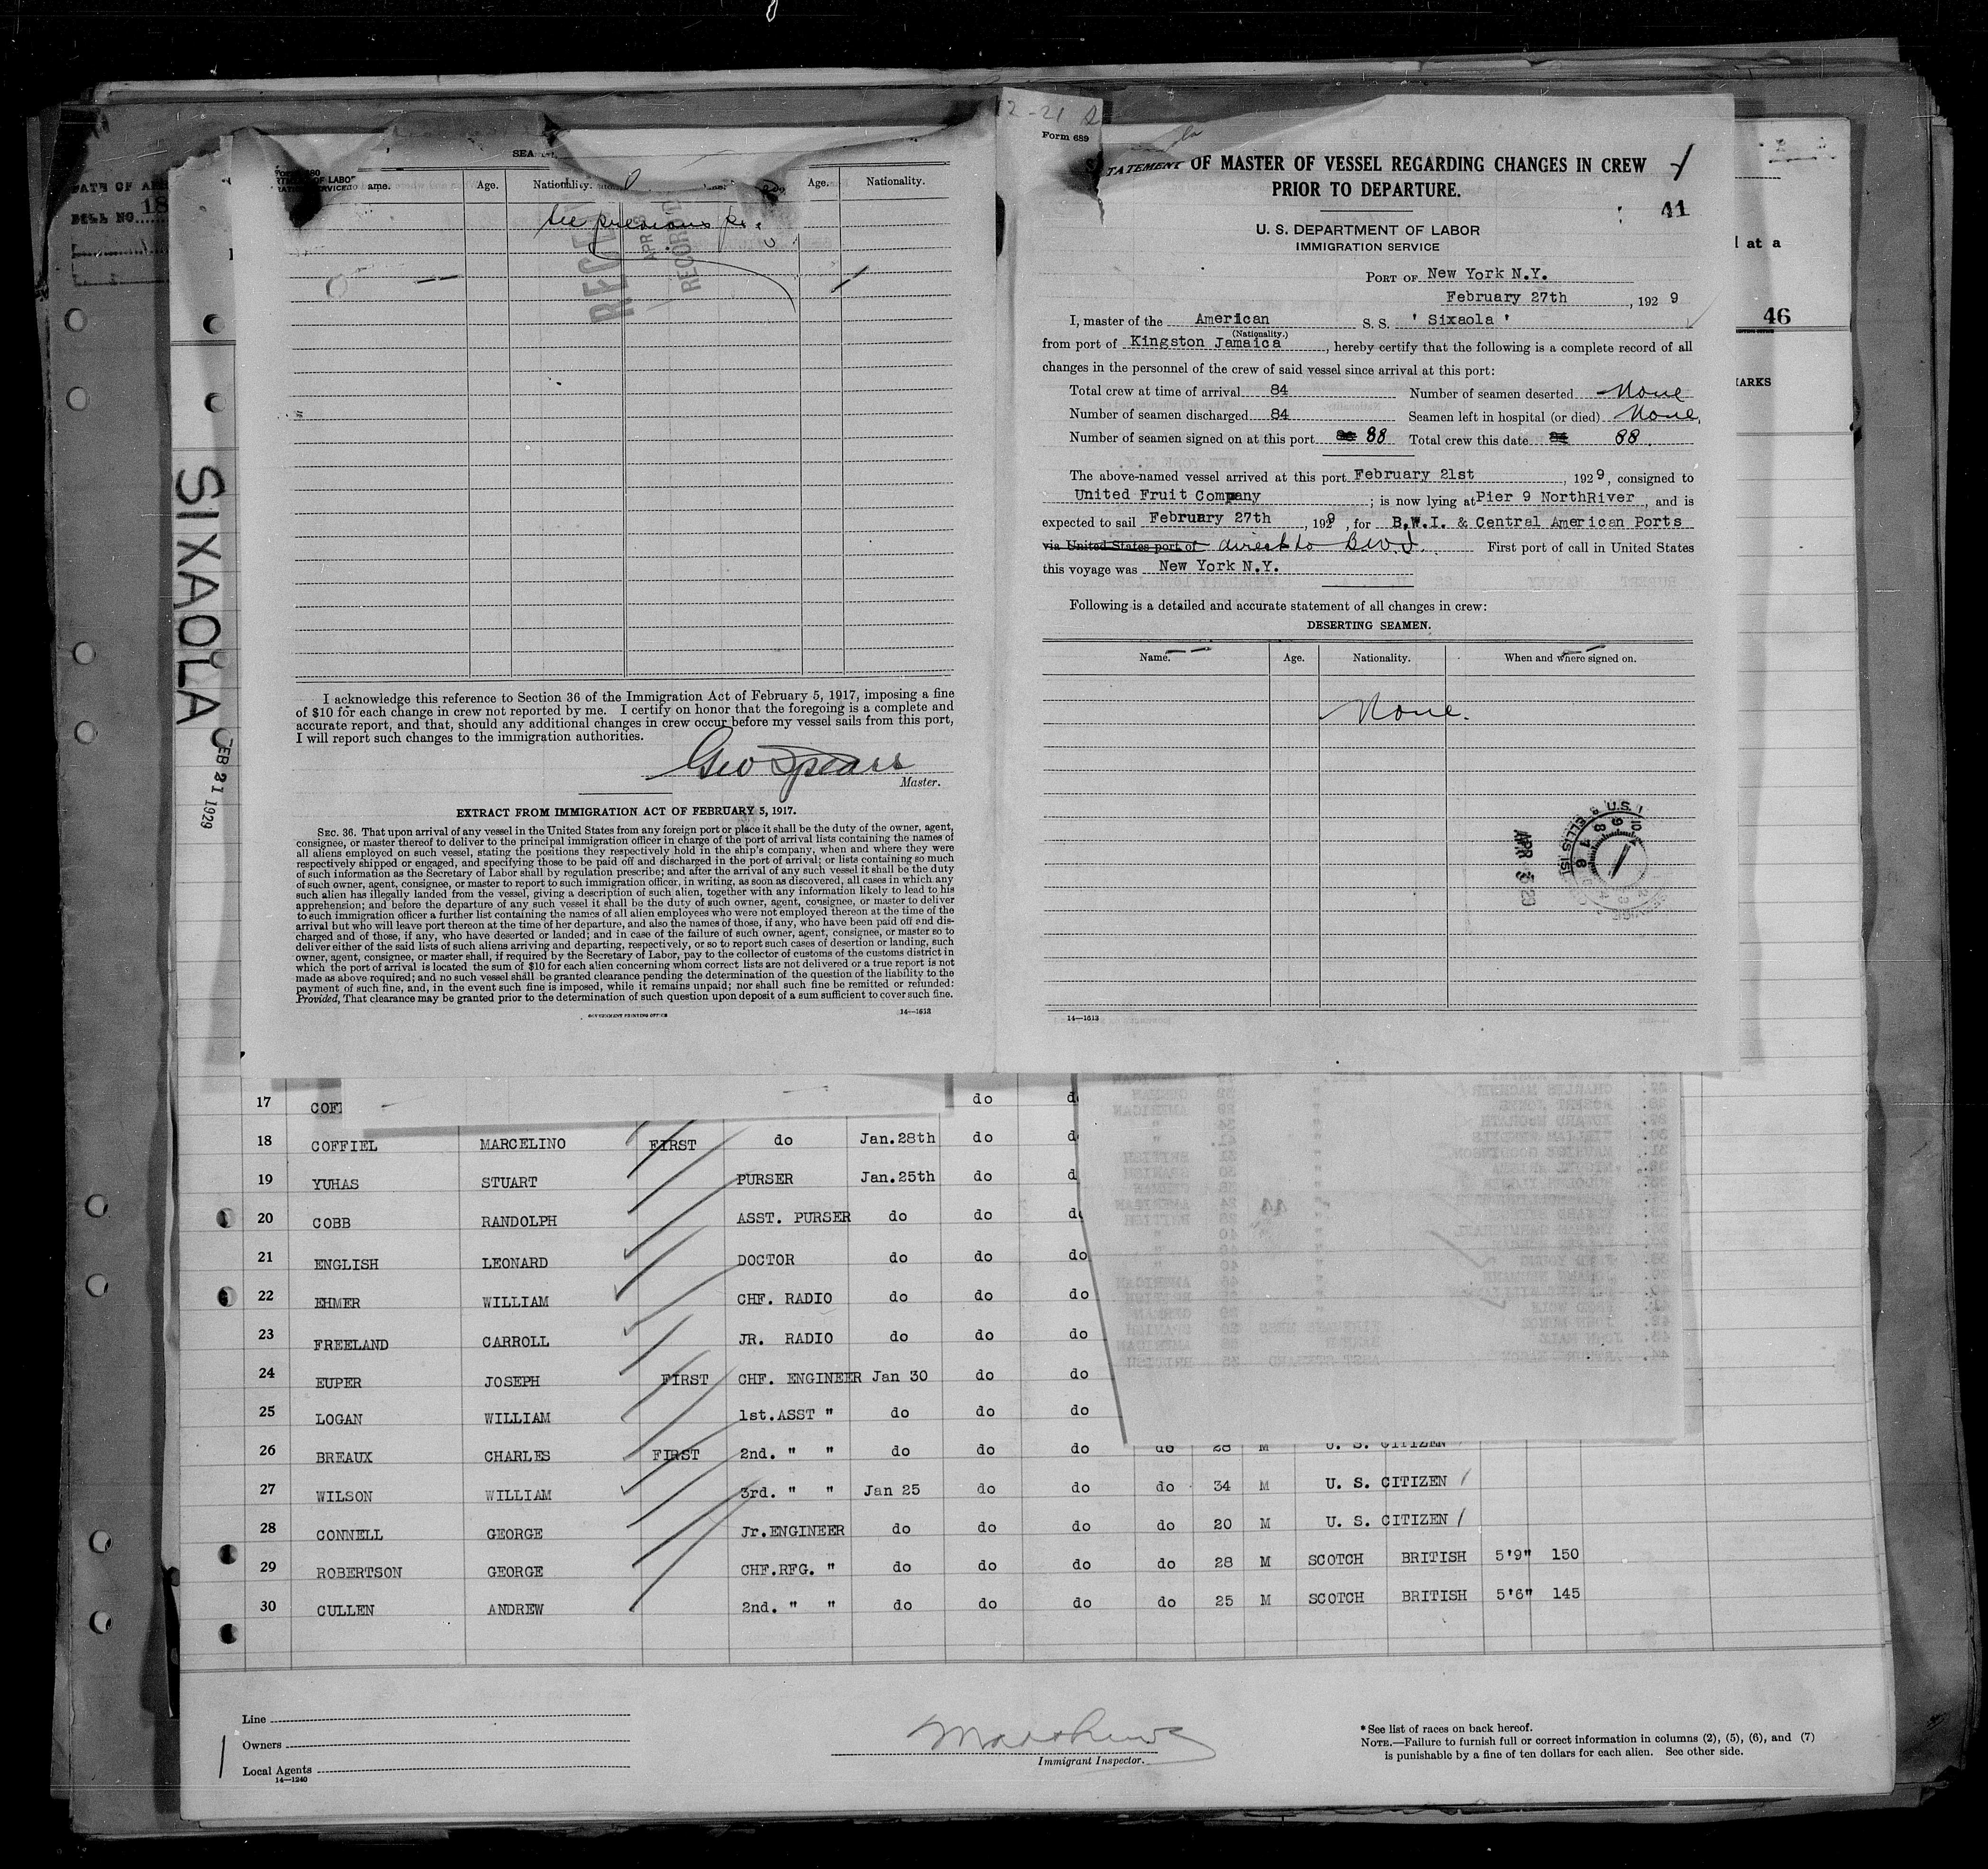 SEA
Name. Age. Nationality. Age. Nationality.
See previous
RECORD
I acknowledge this reference to Section 36 of the Immigration Act of February 5, 1917, imposing a fine
of $10 for each change in crew not reported by me. I certify on honor that the foregoing is a complete and
accurate report, and that, should any additional changes in crew occur before my vessel sails from this port,
I will report such changes to the immigration authorities.
Geo Spears
Master.
EXTRACT FROM IMMIGRATION ACT OF FEBRUARY 5, 1917.
SEC. 36. That upon arrival of any vessel in the United States from any foreign port or place it shall be the duty of the owner, agent,
consignee, or master thereof to deliver to the principal immigration officer in charge of the port of arrival lists containing the names of
all aliens employed on such vessel, stating the positions they respectively hold in the ship's company, when and where they were
respectively shipped or engaged, and specifying those to be paid off and discharged in the port of arrival; or lists containing so much
of such information as the Secretary of Labor shall by regulation prescribe; and after the arrival of any such vessel it shall be the duty
of such owner, agent, consignee, or master to report to such immigration officer, in writing, as soon as discovered, all cases in which any
such alien has illegally landed from the vessel, giving a description of such alien, together with any information likely to lead to his
apprehension; and before the departure of any such vessel it shall be the duty of such owner, agent, consignee, or master to deliver
to such immigration officer a further list containing the names of all alien employees who were not employed thereon at the time of the
arrival but who will leave port thereon at the time of her departure, and also the names of those, if any, who have been paid off and dis-
charged and of those, if any, who have deserted or landed; and in case of the failure of such owner, agent, consignee, or master so to
deliver either of the said lists of such aliens arriving and departing, respectively, or so to report such cases of desertion or landing, such
owner, agent, consignee, or master shall, if required by the Secretary of Labor, pay to the collector of customs of the customs district in
which the port of arrival is located the sum of $10 for each alien concerning whom correct lists are not delivered or a true report is not
made as above required; and no such vessel shall be granted clearance pending the determination of the question of the liability to the
payment of such fine, and, in the event such fine is imposed, while it remains unpaid; nor shall such fine be remitted or refunded:
Provided, That clearance may be granted prior to the determination of such question upon deposit of a sum sufficient to cover such fine.
GOVERNMENT PRINTING OFFICE 14—1613
2-21
Form 689
STATEMENT OF MASTER OF VESSEL REGARDING CHANGES IN CREW
PRIOR TO DEPARTURE.
41
U. S. DEPARTMENT OF LABOR
IMMIGRATION SERVICE
PORT OF New York N.Y.
February 27th, 1929
I, master of the American S. S. ' Sixaola '
(Nationality.)
from port of Kingston Jamaica, hereby certify that the following is a complete record of all
changes in the personnel of the crew of said vessel since arrival at this port:
Total crew at time of arrival 84 Number of seamen deserted None
Number of seamen discharged 84 Seamen left in hospital (or died) None
Number of seamen signed on at this port 88 Total crew this date 88
The above-named vessel arrived at this port February 21st, 1929, consigned to
United Fruit Company; is now lying at Pier 9 NorthRiver, and is
expected to sail February 27th, 1929, for B.W.I. & Central American Ports
via United States port of direct to B.W.I. First port of call in United States
this voyage was New York N.Y.
Following is a detailed and accurate statement of all changes in crew:
DESERTING SEAMEN.
Name. Age. Nationality. When and where signed on.
None.
APR 3 29
14—1613
DATE OF
BILL NO. 18
at a
46
SIXAOLA
FEB 21 1929
17 COF do
18 COFFIEL MARCELINO FIRST do Jan.28th do
19 YUHAS STUART PURSER Jan.25th do
20 COBB RANDOLPH ASST. PURSER do do
21 ENGLISH LEONARD DOCTOR do do do
22 EHMER WILLIAM CHF. RADIO do do do
23 FREELAND CARROLL JR. RADIO do do do
24 EUPER JOSEPH FIRST CHF. ENGINEER Jan 30 do do
25 LOGAN WILLIAM 1st.ASST " do do do
26 BREAUX CHARLES FIRST 2nd. " " do do do do 28 M U. S. CITIZEN
27 WILSON WILLIAM 3rd. " " Jan 25 do do do 34 M U. S. CITIZEN
28 CONNELL GEORGE Jr.ENGINEER do do do do 20 M U. S. CITIZEN
29 ROBERTSON GEORGE CHF.RFG. " do do do do 28 M SCOTCH BRITISH 5'9" 150
30 CULLEN ANDREW 2nd. " " do do do do 25 M SCOTCH BRITISH 5'6" 145
Line
Owners
Local Agents
14—1240
Matthews
Immigrant Inspector.
*See list of races on back hereof.
NOTE.—Failure to furnish full or correct information in columns (2), (5), (6), and (7)
is punishable by a fine of ten dollars for each alien. See other side.